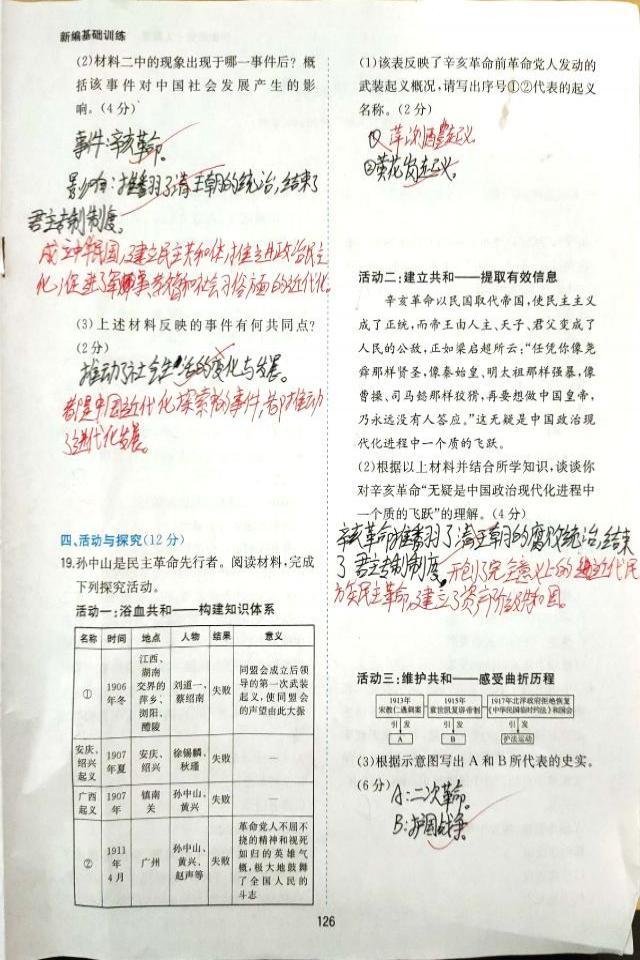 新编基础训练
(2)材料二中的现象出现于哪一事件后？概
括该事件对中国社会发展产生的影
响。(4分)
事件:辛亥革命。
影响:推翻了清王朝的统治,结束了
君主专制制度。
成立中华民国,建立民主共和体,推进政治民主
化,促进了军事、禁锢和社会习俗方面的近代化。
(3)上述材料反映的事件有何共同点？
(2分)
推动了社会生活的变化与发展。
都是中国近代化探索的事件,都推动
了近代化发展。
四、活动与探究(12分)
19.孙中山是民主革命先行者。阅读材料,完成
下列探究活动。
活动一:浴血共和——构建知识体系
名称 时间 地点 人物 结果 意义
① 1906年冬 江西、湖南交界的萍乡、浏阳、醴陵 刘道一、蔡绍南 失败 同盟会成立后领导的第一次武装起义,使同盟会的声望由此大振
安庆、绍兴起义 1907年夏 安庆、绍兴 徐锡麟、秋瑾 失败 —
广西起义 1907年 镇南关 孙中山、黄兴 失败 —
② 1911年4月 广州 孙中山、黄兴、赵声等 失败 革命党人不屈不挠的精神和视死如归的英雄气概,极大地鼓舞了全国人民的斗志
(1)该表反映了辛亥革命前革命党人发动的
武装起义概况,请写出序号①②代表的起义
名称。(2分)
①萍浏醴起义
②黄花岗起义。
活动二:建立共和——提取有效信息
辛亥革命以民国取代帝国,使民主主义
成了正统,而帝王由人主、天子、君父变成了
人民的公敌,正如梁启超所云:“任凭你像尧
舜那样贤圣,像秦始皇、明太祖那样强暴,像
曹操、司马懿那样狡猾,再要想做中国皇帝,
乃永远没有人答应。”这无疑是中国政治现
代化进程中一个质的飞跃。
(2)根据以上材料并结合所学知识,谈谈你
对辛亥革命“无疑是中国政治现代化进程中
一个质的飞跃”的理解。(4分)
辛亥革命推翻了清王朝的腐败统治,结束
了君主专制制度。开创了完全意义上的近代民
族民主革命,建立了资产阶级共和国。
活动三:维护共和——感受曲折历程
1913年宋教仁遇刺案 1915年袁世凯复辟帝制 1917年北洋政府拒绝恢复《中华民国临时约法》和国会
引发 引发 引发
A B 护法运动
(3)根据示意图写出A和B所代表的史实。
(6分)
A:二次革命。
B:护国战争。
126